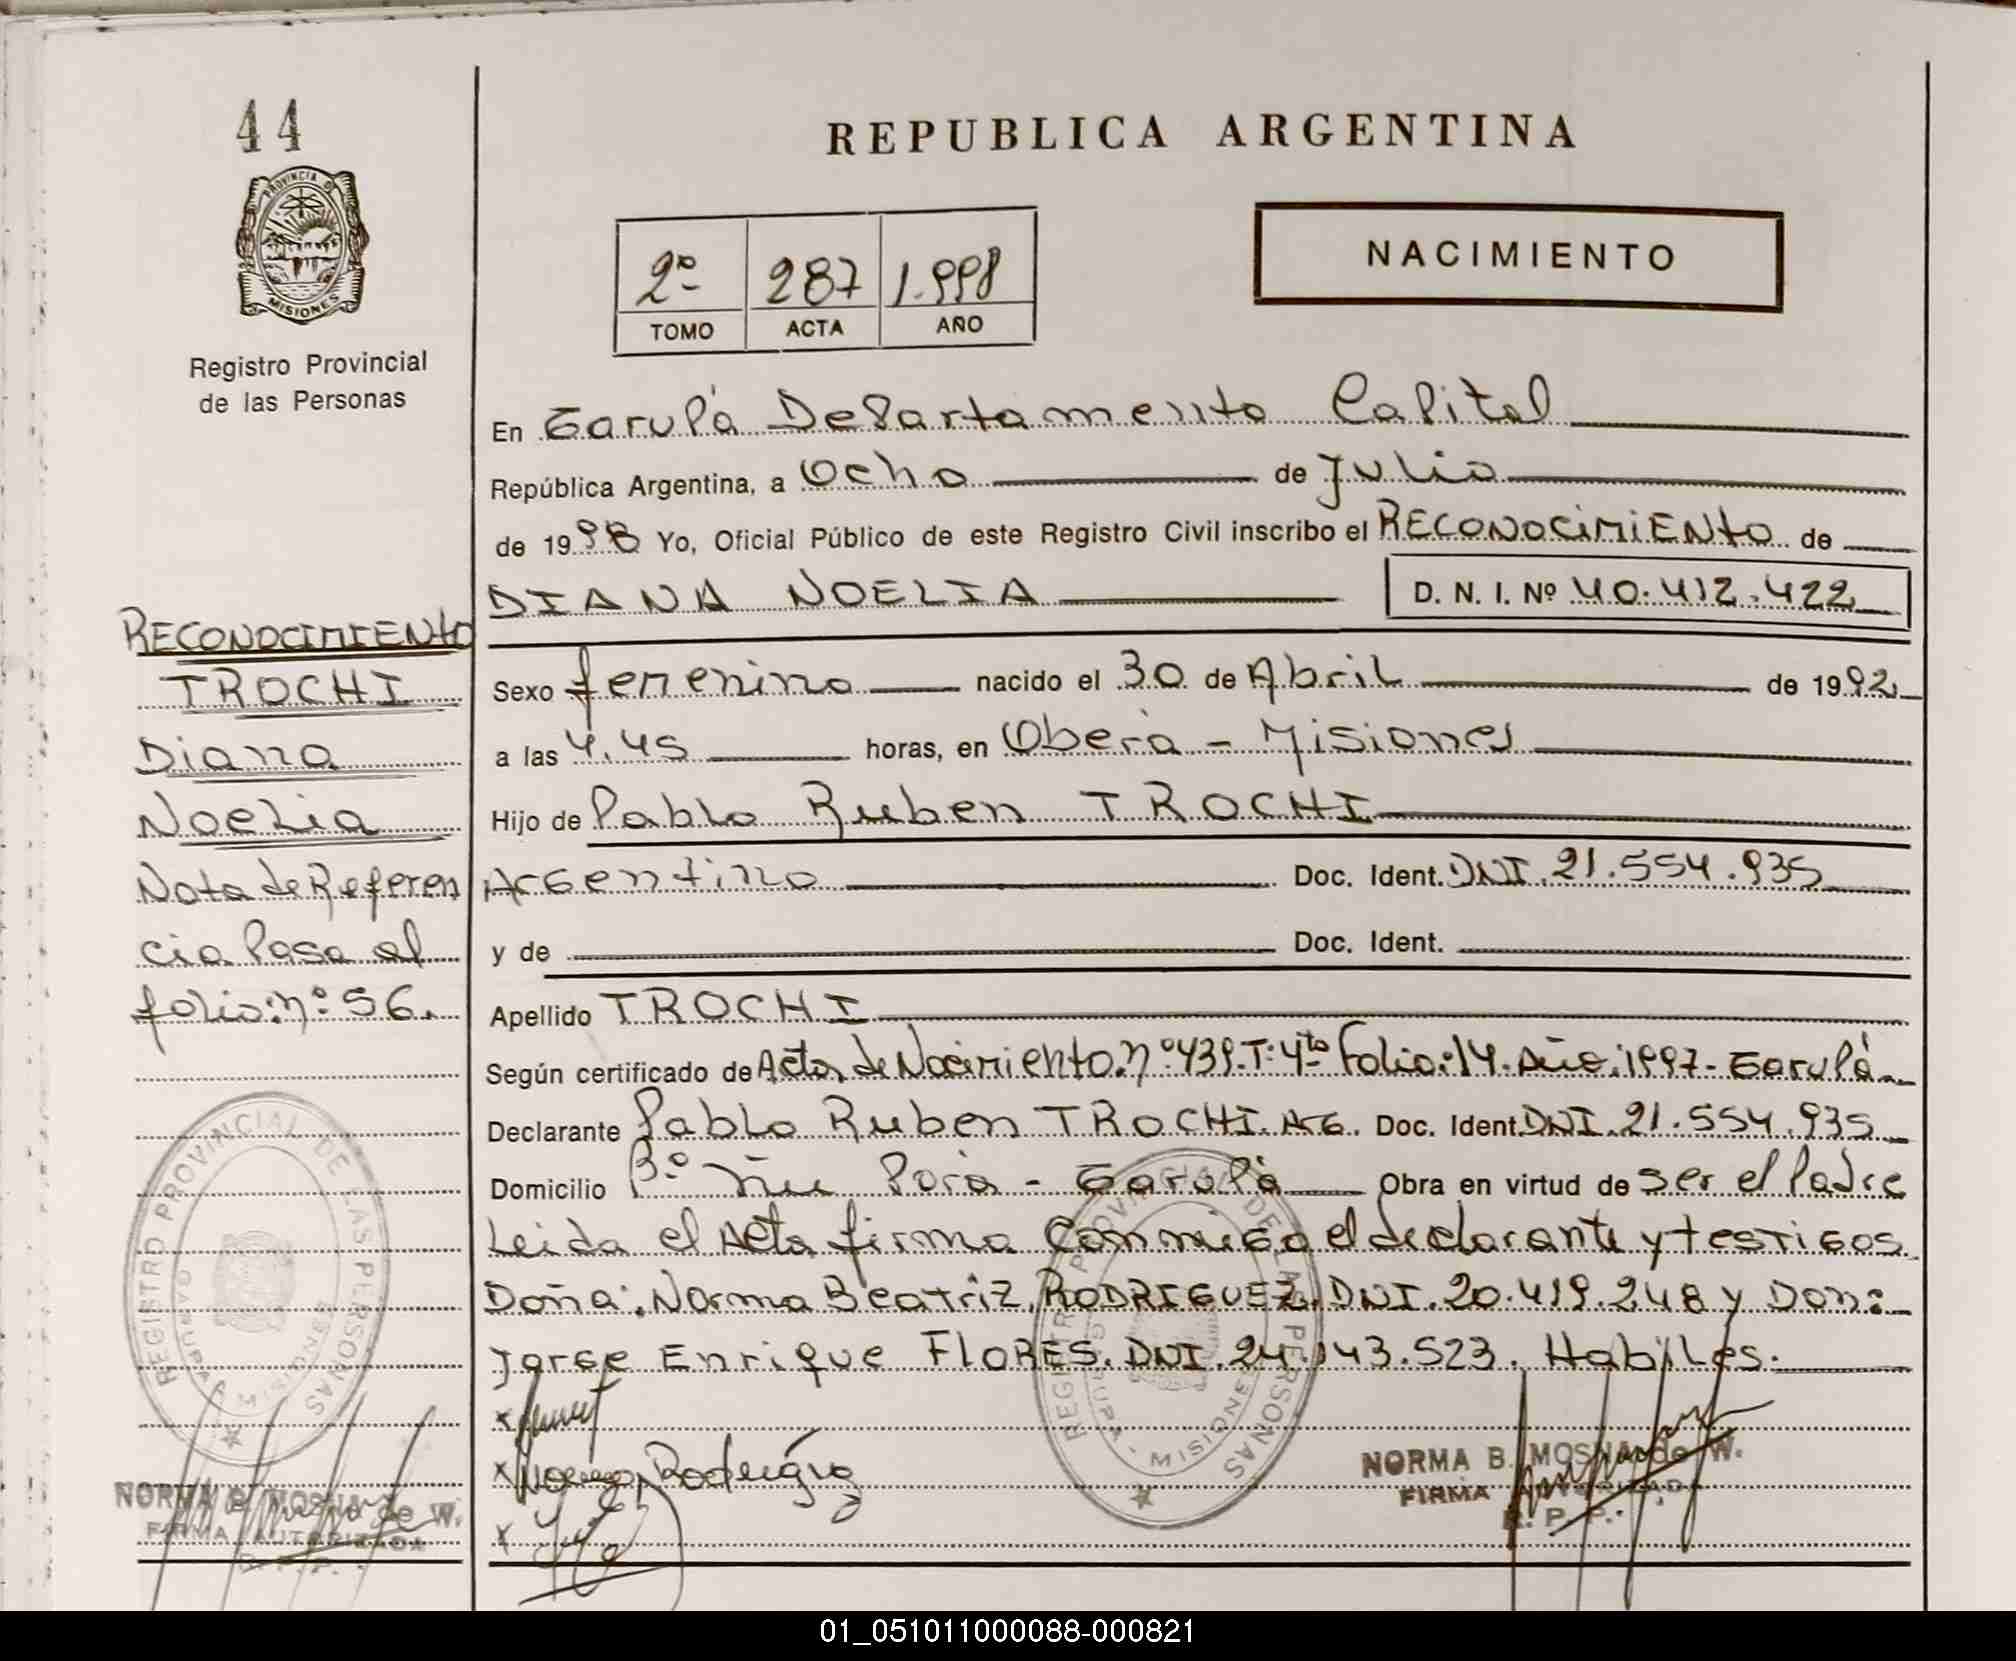 44
REPUBLICA ARGENTINA
PROVINCIA DE
MISIONES
2º 287 1.998
TOMO ACTA AÑO
NACIMIENTO
Registro Provincial
de las Personas
En Garupá Departamento Capital
República Argentina, a Ocho de Julio
de 1998 Yo, Oficial Público de este Registro Civil inscribo el RECONOCIMIENTO de
DIANA NOELIA D. N. I. Nº 40.412.422
Sexo femenino nacido el 30 de Abril de 1992
a las 4.45 horas, en Oberá - Misiones
Hijo de Pablo Ruben TROCHI
Argentino Doc. Ident. DNI. 21.554.935
y de Doc. Ident.
Apellido TROCHI
Según certificado de Acta de Nacimiento. nº 439. T: 4to Folio: 14. Año: 1997- Garupá
Declarante Pablo Ruben TROCHI. AG. Doc. Ident. DNI. 21.554.935
Domicilio Bº Ñu Porá - Garupá Obra en virtud de ser el Padre
Leida el Acta firma Conmigo el declarante y testigos
Doña: Norma Beatriz RODRIGUEZ. DNI. 20.419.248 y Don:
Jorge Enrique FLORES. DNI. 24.143.523. Habiles.
RECONOCIMIENTO
TROCHI
Diana
Noelia
Nota de Referen
cia Pasa al
folio: nº 56.
REGISTRO PROVINCIAL DE LAS PERSONAS
GARUPA - MISIONES
REGISTRO PROVINCIAL DE LAS PERSONAS
GARUPA - MISIONES
x
x Norma Rodriguez
x
NORMA B. MOSNA de W.
FIRMA AUTORIZADA
R. P. P.
NORMA B. MOSNA de W.
FIRMA AUTORIZADA
R. P. P.
01_051011000088-000821